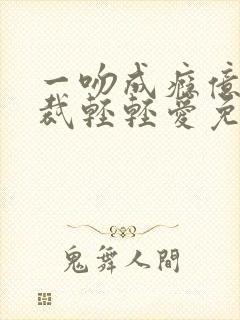 一吻成癮億
裁輕輕愛免
鬼舞人間